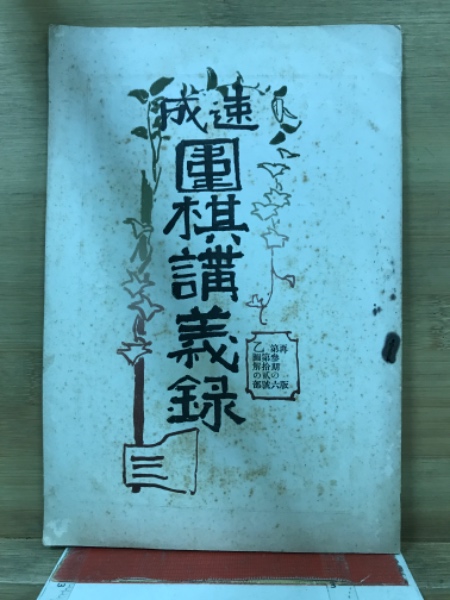 速成
圍棋講義録
再版
第參期の六
第拾貳號
乙圖解の部
三